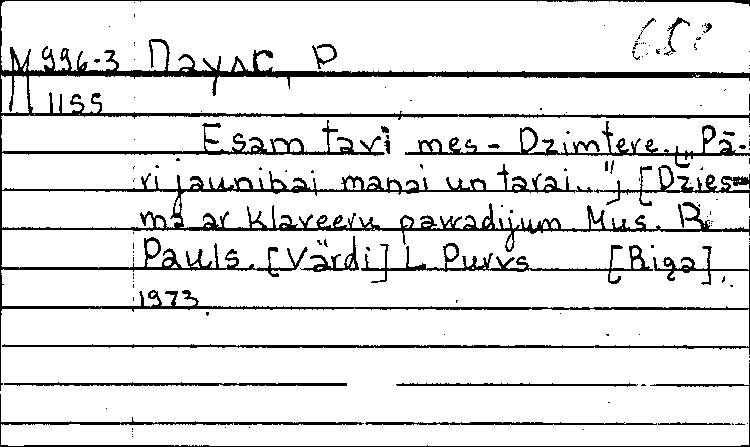 М 996-3 Паулс, Р
1155
Esam tavi mes - Dzimtere. „Pā-
ri jaunibai manai un tavai.."; [Dzies=
ma ar klaveeru pavadijum Mus. R
Pauls. [Värdi] L Purvs [Riga],
1973.